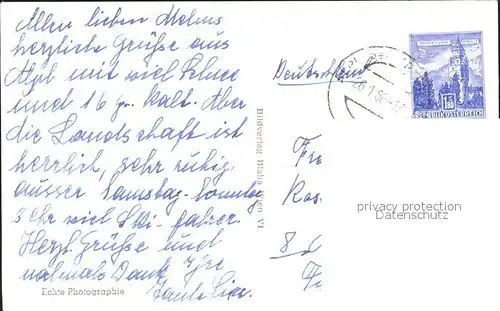 Allen lieben Mehns
herzliche Grüße aus
mit viel Schnee
und 16 gr. kalt. Aber
die Landschaft ist
herrlich, sehr ruhig,
ausser Samstag-Sonntag
sehr viel Ski-fahrer.
Herzl. Grüße und
nochmals Dank Ihre
Tante
Echte Photographie
Bildverlag Blaha Wien VI
Deutschland
REPUBLIK ÖSTERREICH
Fr
Ras
8
privacy protection
Datenschutz